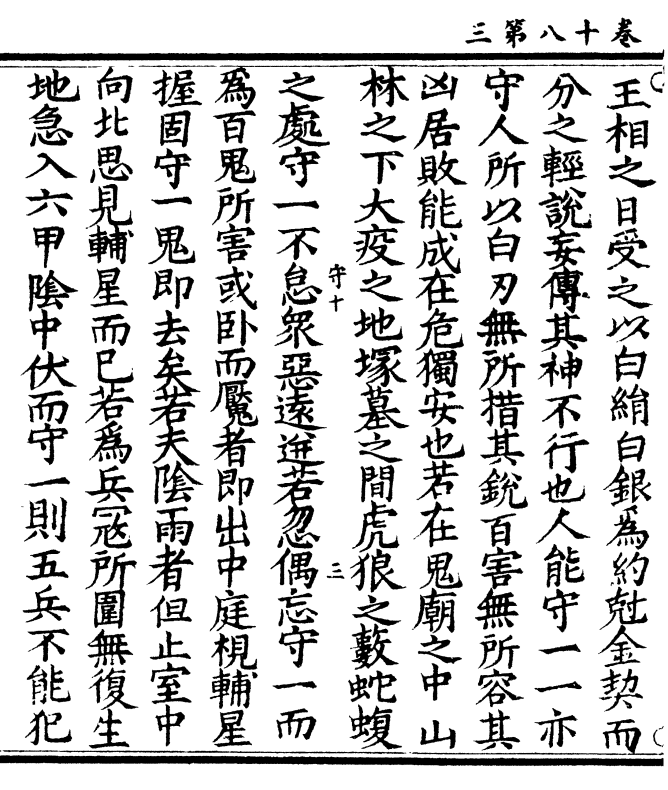 卷十八第三
王相之日受之以白絹白銀爲約尅金契而
分之輕說妄傳其神不行也人能守一一亦
守人所以白刃無所措其銳百害無所容其
凶居敗能成在危獨安也若在鬼廟之中山
林之下大疫之地塚墓之間虎狼之藪蛇蝮
守十 三
之處守一不怠衆惡遠迸若忽偶忘守一而
爲百鬼所害或卧而魘者即出中庭視輔星
握固守一鬼即去矣若夫陰雨者但止室中
向北思見輔星而已若爲兵冦所圍無復生
地急入六甲陰中伏而守一則五兵不能犯